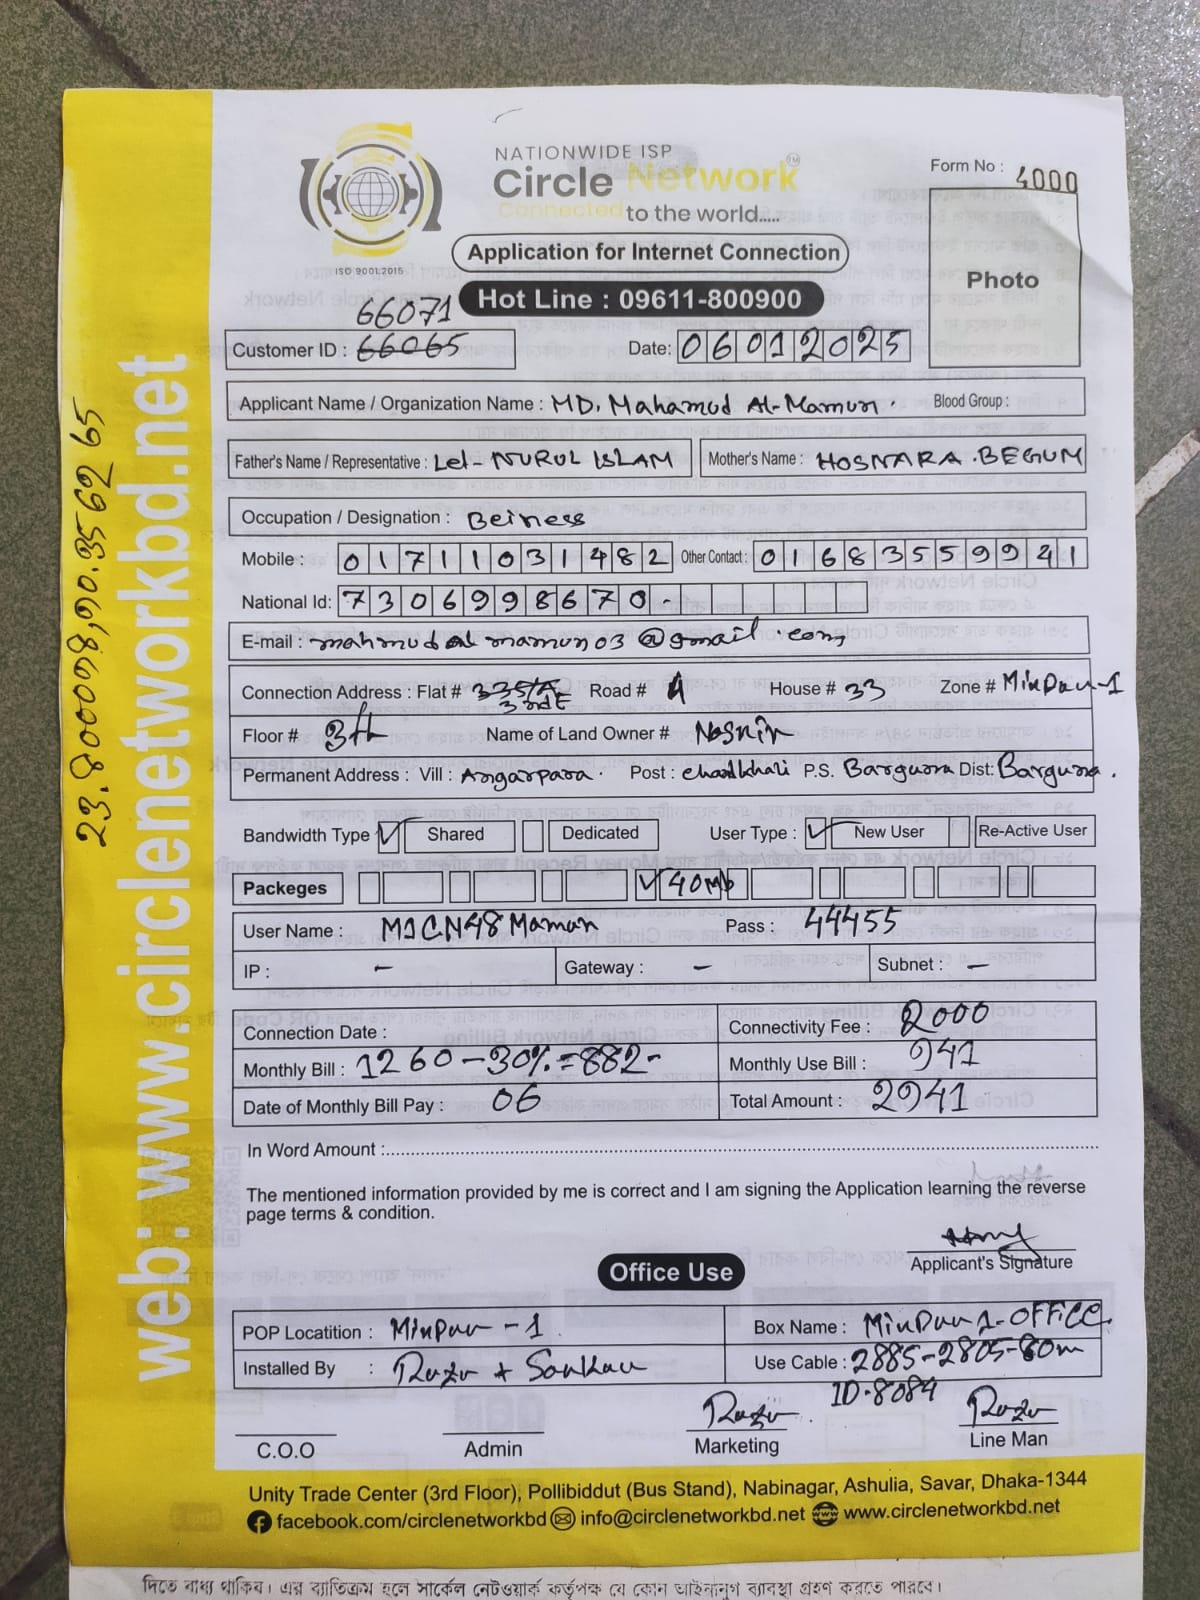 NATIONWIDE ISP
Circle Network TM
Connected to the world.....
ISO 9001:2015
Form No : 4000
Photo
Application for Internet Connection
Hot Line : 09611-800900
66071
Customer ID : 66065
Date: 06012025
Applicant Name / Organization Name : MD. Mahamud Al-Mamun. Blood Group :
Father's Name / Representative : Let- NURUL ISLAM Mother's Name : HOSNARA. BEGUM
Occupation / Designation : Beiness
Mobile : 01711031482 Other Contact : 01683559941
National Id: 7306998670-
E-mail : mahmudalmamun03@gmail.com
Connection Address : Flat # 335/A Road # 4 House # 33 Zone # MirPur-1
Floor # 3th Name of Land Owner # Nasrin
Permanent Address : Vill : Angarpara. Post : chadkhali P.S. Barguna Dist: Barguna.
Bandwidth Type Shared Dedicated User Type : New User Re-Active User
Packeges 40Mb
User Name : M1CN48Maman Pass : 44455
IP : - Gateway : - Subnet : -
Connection Date : Connectivity Fee : 2000
Monthly Bill : 1260-30%=882- Monthly Use Bill : 941
Date of Monthly Bill Pay : 06 Total Amount : 2941
In Word Amount :
The mentioned information provided by me is correct and I am signing the Application learning the reverse
page terms & condition.
Applicant's Signature
Office Use
POP Locatition : MirPur-1 Box Name : MirPur1-OFFICE
Installed By : Razu + Sarkar Use Cable : 2885-2805-80m
ID-8084
Razu Razu
C.O.O Admin Marketing Line Man
Unity Trade Center (3rd Floor), Pollibiddut (Bus Stand), Nabinagar, Ashulia, Savar, Dhaka-1344
facebook.com/circlenetworkbd info@circlenetworkbd.net www.circlenetworkbd.net
web: www.circlenetworkbd.net
23.800098,90.356265
দিতে বাধ্য থাকিব। এর ব্যতিক্রম হলে সার্কেল নেটওয়ার্ক কর্তৃপক্ষ যে কোন আইনানুগ ব্যবস্থা গ্রহণ করতে পারবে।